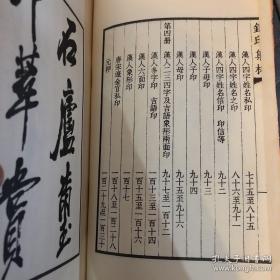 漢人四字姓名私印 七十五至八十五
漢人四字姓名之印 八十六至九十一
漢人四字姓名信印 印信等 九十二
漢人子母印 九十三
漢人母印 九十四
漢人子印 九十五至九十六
第四册
漢人一二三四字及言語象形兩面印 九十七至一百十一
漢人多字印 言語印 一百十二至一百十四
漢人六面印 一百十五
漢人象形印 一百十六至一百十七
唐宋遼金官私印
元押
石廬
孔夫子旧书网